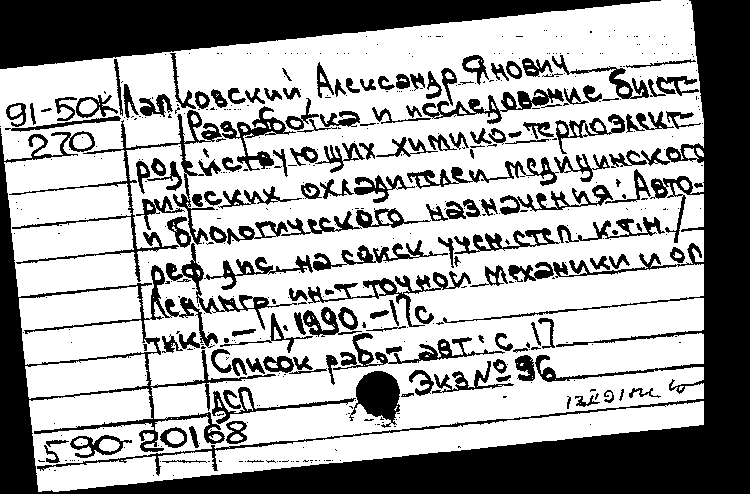 91-50К Лапковский, Александр Янович
270 Разработка и исследование быст-
родействующих химико-термоэлект-
рических охладителей медицинского
и биологического назначения: Авто-
реф. дис. на соиск. учен. степ. к.т.н. /
Ленингр. ин-т точной механики и оп
тики. – Л. 1990. – 17 с.
Список работ авт.: с. 17
ДСП Экз № 96
590-20168